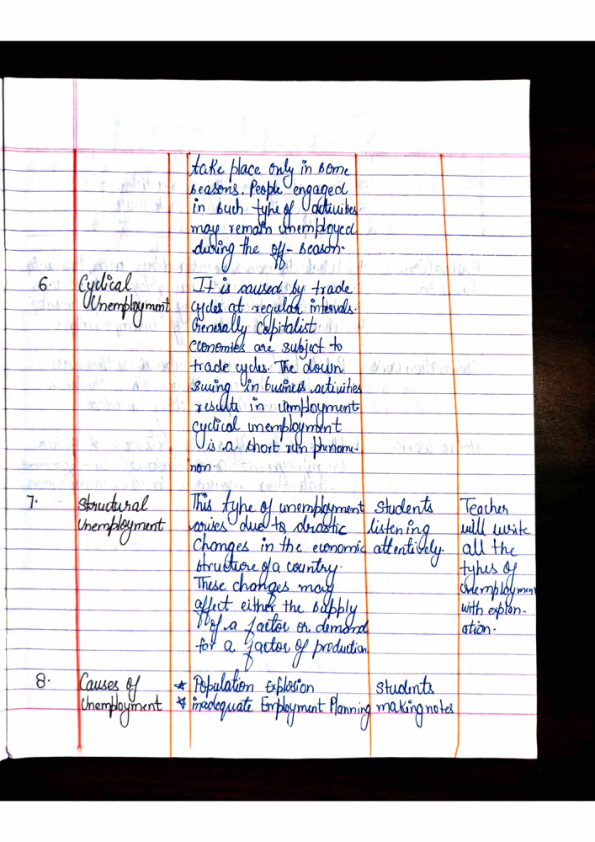 take place only in some
seasons. People engaged
in such type of activities
may remain unemployed
during the off-season.
6. Cyclical
Unemployment
It is caused by trade
cycles at regular intervals.
Generally capitalist
economies are subject to
trade cycles. The down
swing in business activities
results in unemployment
cyclical unemployment
is a short run phenome-
non.
7. Structural
Unemployment
This type of unemployment
arises due to drastic
changes in the economic
structure of a country.
These changes may
affect either the supply
of a factor or demand
for a factor of production
students
listening
attentively.
Teacher
will write
all the
types of
unemployment
with explan-
ation.
8. Causes of
Unemployment
★ Population Explosion
★ inadequate Employment Planning
students
making notes